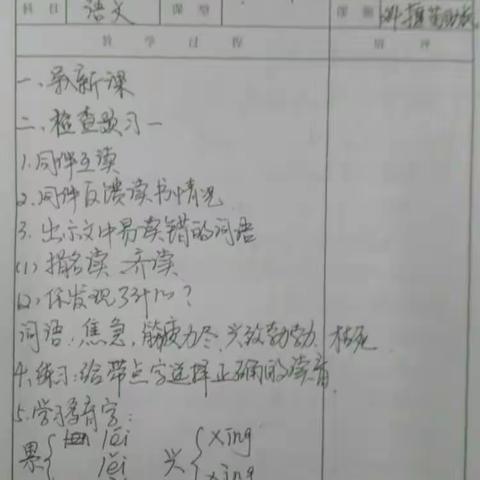 科目 语文 课型 课题 外 揠苗助长
教学过程
一、导新课
二、检查预习一
1.同伴互读
2.同伴反馈读书情况
3.出示文中易读错的词语
(1)指名读 齐读
(2)你发现了什么?
词语:焦急、筋疲力尽、兴致勃勃、枯死
4、练习:给带点字选择正确的读音
5.学习多音字:
累 lèi 兴 xìng
lěi xīng